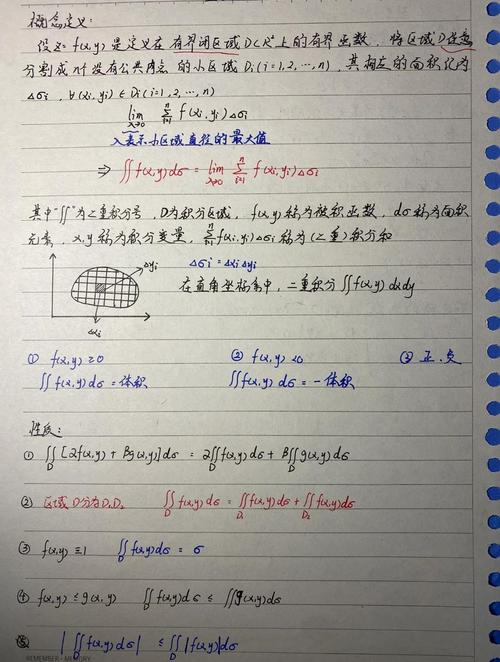 概念定义:
设z=f(x,y)是定义在有界闭区域D⊂R²上的有界函数, 将区域D任意
分割成n个没有公共内点的小区域Di(i=1,2,…,n), 其相应的面积记为
Δσi, ∀(xi,yi)∈Di(i=1,2,…,n)
lim λ→0 Σ i=1 n f(xi,yi)Δσi
λ表示小区域直径的最大值
⇒ ∬f(x,y)dσ = lim λ→0 Σ i=1 n f(xi,yi)Δσi
其中"∬"为二重积分号, D为积分区域, f(x,y)称为被积函数, dσ称为面积
元素, x,y称为积分变量, Σ i=1 n f(xi,yi)Δσi称为(二重)积分和
Δyi
Δσi=ΔxiΔyi
在直角坐标系中, 二重积分∬f(x,y)dxdy
Δxi
① f(x,y)≥0 ② f(x,y)<0 ③ 正.负
∬f(x,y)dσ=体积 ∬f(x,y)dσ=-体积
性质:
① ∬D [2f(x,y)+βg(x,y)]dσ = 2∬D f(x,y)dσ + β∬D g(x,y)dσ
② 区域D分为D₁D₂ ∬D f(x,y)dσ = ∬D₁ f(x,y)dσ + ∬D₂ f(x,y)dσ
③ f(x,y)≡1 ∬D f(x,y)dσ = σ
④ f(x,y)≤g(x,y) ∬D f(x,y)dσ ≤ ∬g(x,y)dσ
⑤ |∬D f(x,y)dσ| ≤ ∬D |f(x,y)|dσ
REMEMBER · MEMORY